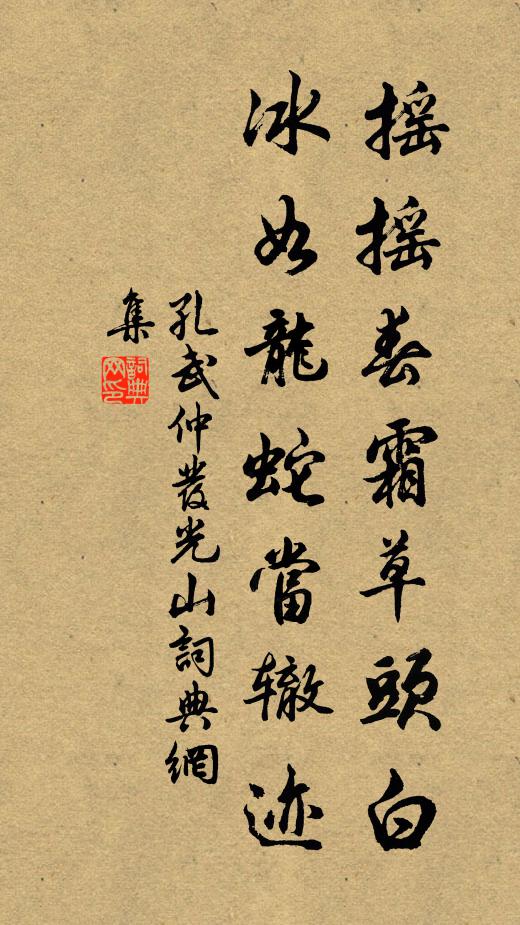 摇摇春霜草頭白
冰如龍蛇當辙迹
孔武仲發光山詞典網
集
詞典
网印